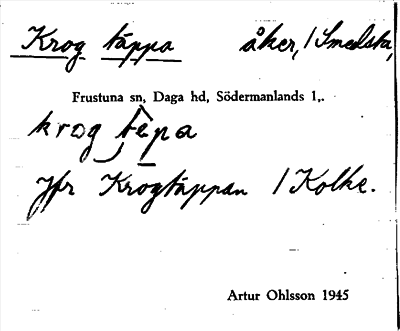 Krog täppa åker, / Smedsta,
Frustuna sn, Daga hd, Södermanlands l,.
krog tepa
Jfr Krogtäppan / Kolke.
Artur Ohlsson 1945